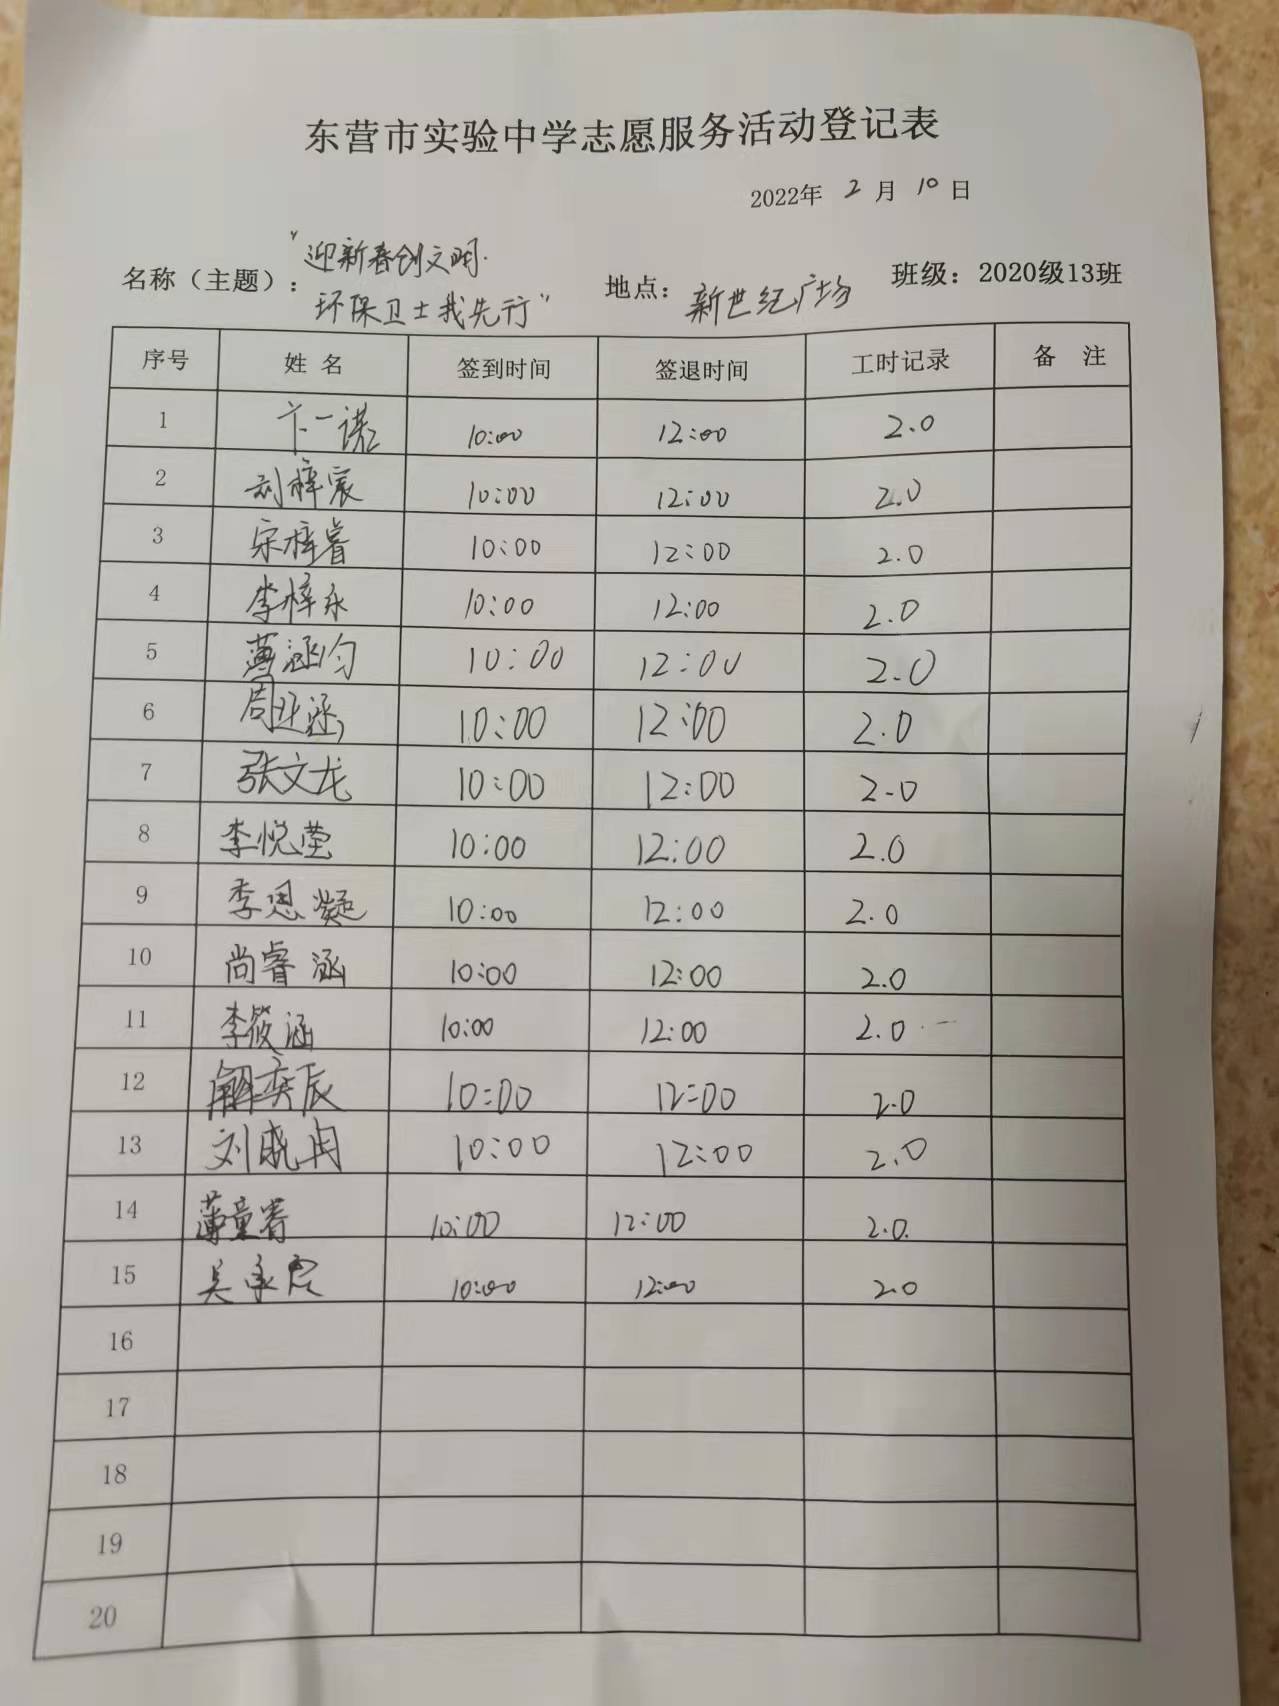 东营市实验中学志愿服务活动登记表
2022年 2 月 10 日
名称（主题）： "迎新春创文明.
环保卫士我先行" 地点： 新世纪广场 班级：2020级13班
序号 姓 名 签到时间 签退时间 工时记录 备 注
1 卞一诺 10:00 12:00 2.0
2 刘梓宸 10:00 12:00 2.0
3 宋梓睿 10:00 12:00 2.0
4 李梓永 10:00 12:00 2.0
5 薄涵匀 10:00 12:00 2.0
6 周 涵 10:00 12:00 2.0
7 张文龙 10:00 12:00 2.0
8 李悦莹 10:00 12:00 2.0
9 李思凝 10:00 12:00 2.0
10 尚睿涵 10:00 12:00 2.0
11 李筱涵 10:00 12:00 2.0
12 解奕辰 10:00 12:00 2.0
13 刘晓冉 10:00 12:00 2.0
14 薄童 10:00 12:00 2.0.
15 吴承 10:00 12:00 2.0
16
17
18
19
20